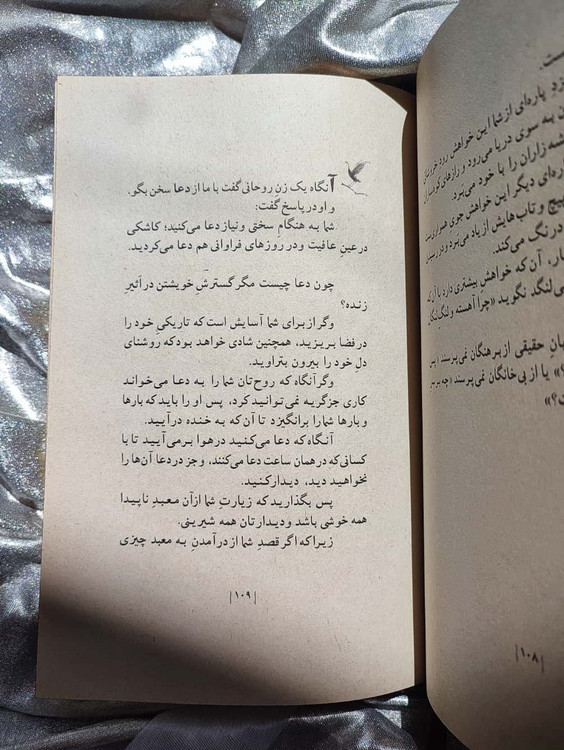 ست.
نزدِ پاره‌ای از شما این خواهش رود خروشان
به سوی دریا می‌رود و رازهای
شه‌زاران را با خود می‌برد.
ره‌ای دیگر این خواهش جوی همواری‌ست
پیچ و تاب‌هایش از یاد می‌برد و در
درنگ می‌کند.
آن که خواهشِ بیشتری دارد با آن که
می‌لنگد نگوید «چرا آهسته و لنگ‌لنگان
حقیقی از برهنگان نمی‌پرسند
؟» یا از بی‌خانگان نمی‌پرسند «چه بر سرِ
ت؟»
|۱۰۸|
آنگاه یک زنِ روحانی گفت با ما از دعا سخن بگو.
و او در پاسخ گفت:
شما به هنگامِ سختی و نیاز دعا می‌کنید؛ کاشکی
در عینِ عافیت و در روزهای فراوانی هم دعا می‌کردید.
چون دعا چیست مگر گسترشِ خویشتن در اَثیرِ
زنده؟
و گر از برای شما آسایش است که تاریکیِ خود را
در فضا بریزید، همچنین شادی خواهد بود که روشنای
دلِ خود را بیرون بتراوید.
و گر آنگاه که روح‌تان شما را به دعا می‌خواند
کاری جز گریه نمی‌توانید کرد، پس او را باید که بارها
و بارها شما را برانگیزد تا آن که به خنده درآیید.
آنگاه که دعا می‌کنید در هوا برمی‌آیید تا با
کسانی که در همان ساعت دعا می‌کنند، و جز در دعا آن‌ها را
نخواهید دید، دیدار کنید.
پس بگذارید که زیارتِ شما از آن معبدِ ناپیدا
همه خوشی باشد و دیدارتان همه شیرینی.
زیرا که اگر قصدِ شما از درآمدنِ به معبد چیزی
|۱۰۹|